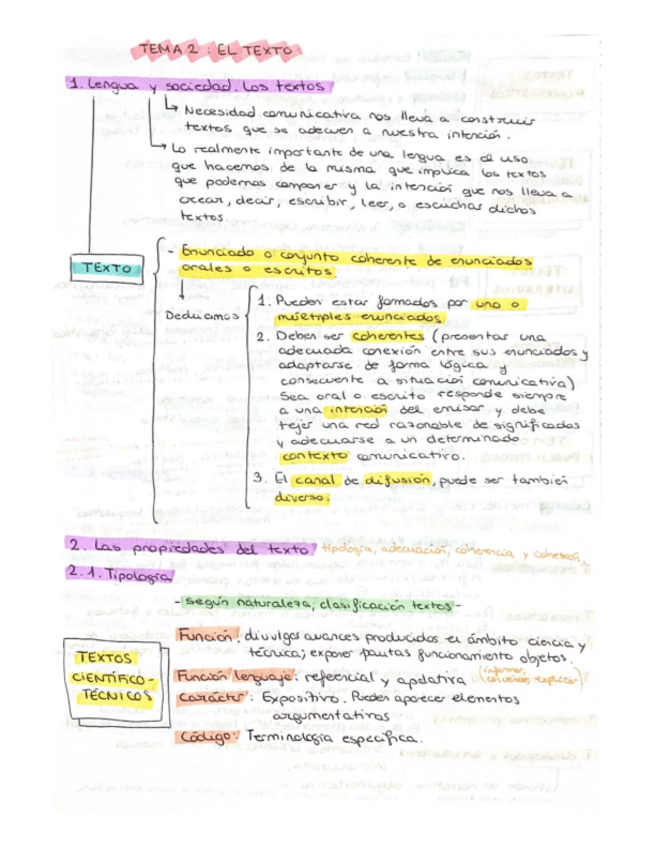 TEMA 2 : EL TEXTO
1. Lengua y sociedad. Los textos
Necesidad comunicativa nos lleva a construir
textos que se adecuen a nuestra intención.
Lo realmente importante de una lengua es el uso
que hacemos de la misma que implica los textos
que podemos componer y la intención que nos lleva a
crear, decir, escribir, leer, o escuchar dichos
textos.
TEXTO
- Enunciado o conjunto coherente de enunciados
orales o escritos
Deducimos
1. Pueden estar formados por uno o
múltiples enunciados
2. Deben ser coherentes (presentar una
adecuada conexión entre sus enunciados y
adaptarse de forma lógica y
consecuente a situación comunicativa)
Sea oral o escrito responde siempre
a una intención del emisor y debe
tejer una red razonable de significados
y adecuarse a un determinado
contexto comunicativo.
3. El canal de difusión, puede ser también
diverso.
2. Las propiedades del texto tipología, adecuación, coherencia y cohesión.
2.1. Tipología
- según naturaleza, clasificación textos -
TEXTOS
CIENTÍFICO-
TÉCNICOS
Función: divulgar avances producidos el ámbito ciencia y
técnica; exponer pautas funcionamiento objetos.
Función lenguaje: referencial y apelativa (informar, convencer, explicar)
Carácter: Expositivo. Pueden aparecer elementos
argumentativos
Código: Terminología específica.